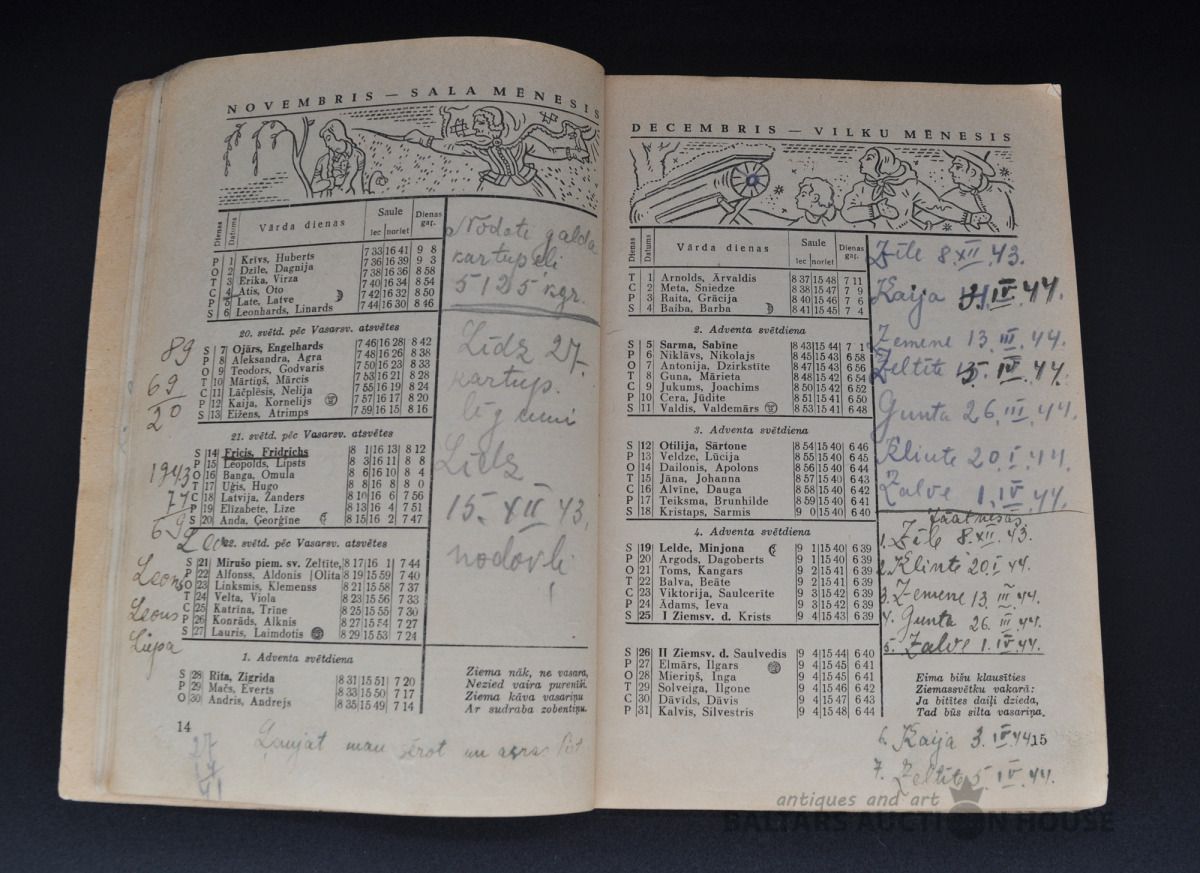 NOVEMBRIS — SALA MĒNESIS
Dienas Datums Vārda dienas Saule Dienas gaŗ.
lec noriet
P 1 Krīvs, Huberts 7 33 16 41 9 8
O 2 Dzile, Dagnija 7 36 16 39 9 3
T 3 Ērika, Virza 7 38 16 36 8 58
C 4 Atis, Oto 7 40 16 34 8 54
P 5 Late, Latve 7 42 16 32 8 50
S 6 Leonhards, Linards 7 44 16 30 8 46
20. svētd. pēc Vasarsv. atsvētes
S 7 Ojārs, Engelhards 7 46 16 28 8 42
P 8 Aleksandra, Agra 7 48 16 26 8 38
O 9 Teodors, Godvaris 7 50 16 23 8 33
T 10 Mārtiņš, Mārcis 7 53 16 21 8 28
C 11 Lāčplēsis, Nelija 7 55 16 19 8 24
P 12 Kaija, Kornelijs 7 57 16 17 8 20
S 13 Eižens, Atrimps 7 59 16 15 8 16
21. svētd. pēc Vasarsv. atsvētes
S 14 Fricis, Fridrichs 8 1 16 13 8 12
P 15 Leopolds, Lipsts 8 3 16 11 8 8
O 16 Banga, Omula 8 6 16 10 8 4
T 17 Uģis, Hugo 8 8 16 8 8 0
C 18 Latvija, Zanders 8 10 16 6 7 56
P 19 Elizabete, Lize 8 13 16 4 7 51
S 20 Anda, Georģine 8 15 16 2 7 47
22. svētd. pēc Vasarsv. atsvētes
S 21 Mirušo piem. sv. Zeltīte, 8 17 16 1 7 44
P 22 Alfonss, Aldonis |Olita 8 19 15 59 7 40
O 23 Linksmis, Klemenss 8 21 15 58 7 37
T 24 Velta, Viola 8 23 15 56 7 33
C 25 Katrīna, Trīne 8 25 15 55 7 30
P 26 Konrāds, Alknis 8 27 15 54 7 27
S 27 Lauris, Laimdotis 8 29 15 53 7 24
1. Adventa svētdiena
S 28 Rita, Zigrida 8 31 15 51 7 20
P 29 Mačs, Everts 8 33 15 50 7 17
O 30 Andris, Andrejs 8 35 15 49 7 14
14
89
69
20
1943
77
69
Leons
Leons
Liepa
Nodoti galda
kartupeļi
5125 kgr.
Līdz 27.
kartup.
Līdz
15. XII 43.
nodevši
!
Ziema nāk, ne vasara,
Nezied vaira purenīši.
Ziema kāva vasariņu
Ar sudraba zobentiņu.
Ļaujat man sērot un
27
17
41
DECEMBRIS — VILKU MĒNESIS
Dienas Datums Vārda dienas Saule Dienas gaŗ.
lec noriet
T 1 Arnolds, Ārvaldis 8 37 15 48 7 11
C 2 Meta, Sniedze 8 38 15 47 7 9
P 3 Raita, Grācija 8 40 15 46 7 6
S 4 Baiba, Barba 8 41 15 45 7 4
2. Adventa svētdiena
S 5 Sarma, Sabīne 8 43 15 44 7 1
P 6 Niklāvs, Nikolajs 8 45 15 43 6 58
O 7 Antonija, Dzirkstīte 8 47 15 43 6 56
T 8 Guna, Mārieta 8 48 15 42 6 54
C 9 Jukums, Joachims 8 50 15 42 6 52
P 10 Cera, Jūdīte 8 51 15 41 6 50
S 11 Valdis, Valdemārs 8 53 15 41 6 48
3. Adventa svētdiena
S 12 Otilija, Sārtone 8 54 15 40 6 46
P 13 Veldze, Lūcija 8 55 15 40 6 45
O 14 Dailonis, Apolons 8 56 15 40 6 44
T 15 Jāna, Johanna 8 57 15 40 6 43
C 16 Alvīne, Dauga 8 58 15 40 6 42
P 17 Teiksma, Brunhilde 8 59 15 40 6 41
S 18 Kristaps, Sarmis 9 0 15 40 6 40
4. Adventa svētdiena
S 19 Lelde, Minjona 9 1 15 40 6 39
P 20 Argods, Dagoberts 9 1 15 40 6 39
O 21 Toms, Kangars 9 2 15 41 6 39
T 22 Balva, Beāte 9 2 15 41 6 39
C 23 Viktorija, Saulcerīte 9 3 15 42 6 39
P 24 Ādams, Ieva 9 3 15 42 6 39
S 25 I Ziemsv. d. Krists 9 4 15 43 6 39
S 26 II Ziemsv. d. Saulvedis 9 4 15 44 6 40
P 27 Elmārs, Ilgars 9 4 15 45 6 41
O 28 Mieriņš, Inga 9 4 15 45 6 41
T 29 Solveiga, Ilgone 9 4 15 46 6 42
C 30 Dāvids, Dāvis 9 4 15 47 6 43
P 31 Kalvis, Silvestris 9 4 15 48 6 44
Zīle 8.XII.43.
Kaija IV.44.
Zemene 13.III.44.
Zeltīte 5.IV.44.
Gunta 26.III.44.
Klinte 20.I.44.
Zalve 1.IV.44.
1. Zīle 8.XII.43.
2. Klinte 20.I.44.
3. Zemene 13.III.44.
4. Gunta 26.III.44.
5. Zalve 1.IV.44.
Eima bišu klausīties
Ziemassvētku vakarā:
Ja bitītes daiļi dzieda,
Tad būs silta vasariņa.
6. Kaija 3.IV.44.
15
7. Zeltīte 5.IV.44.
antiques and art
BALTARS AUCTION HOUSE